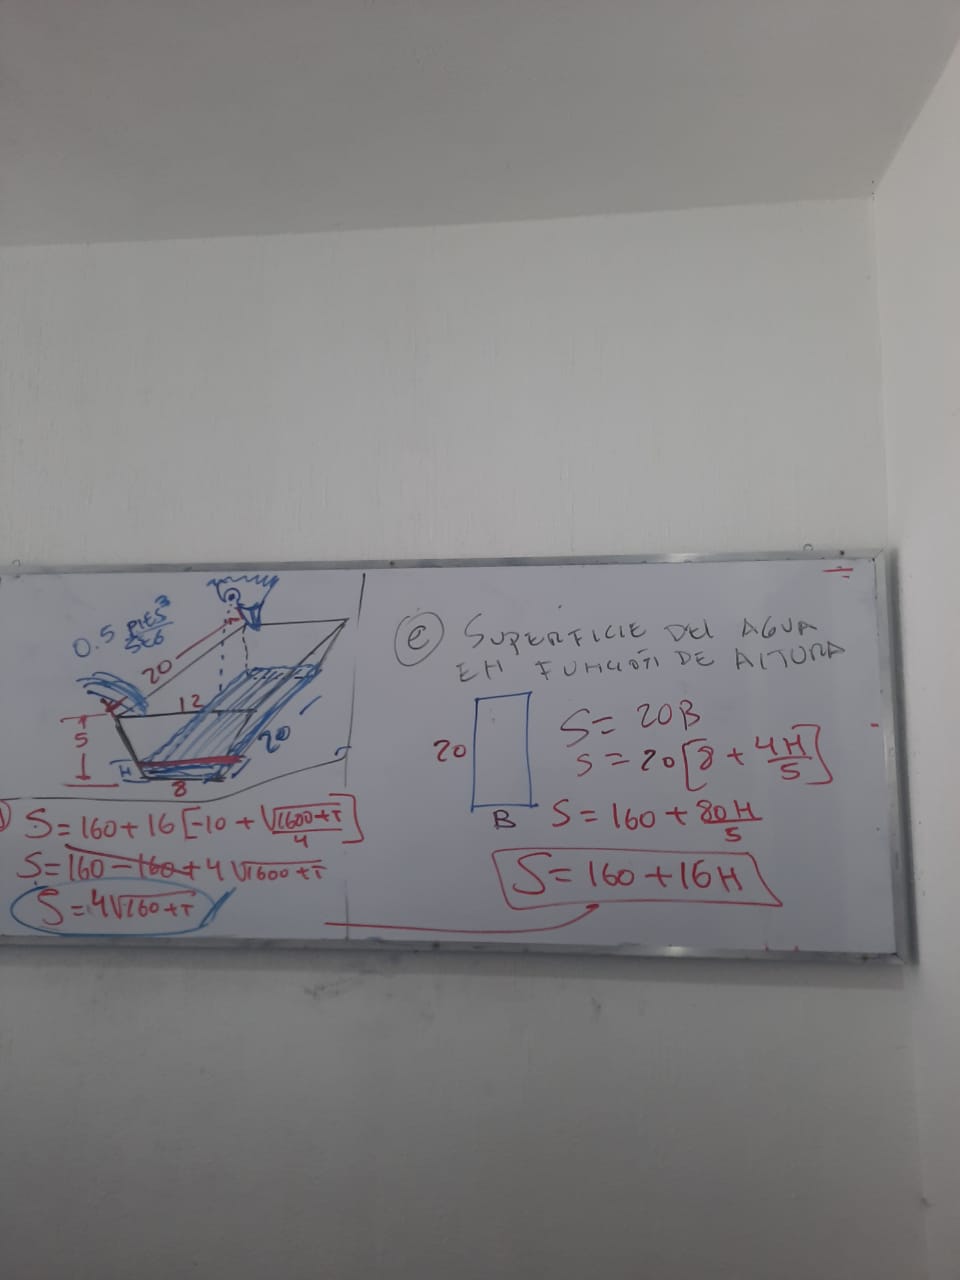 0.5 PIES³/SEG
20
12
5
20
H
8
) S = 160 + 16 [-10 + √(1600+T)/4]
S = 160 - 160 + 4√1600+T
S = 4√160+T
e) SUPERFICIE DEL AGUA
EN FUNCIÓN DE ALTURA
20
B
S = 20B
S = 20 [8 + 4H/5]
S = 160 + 80H/5
S = 160 + 16H